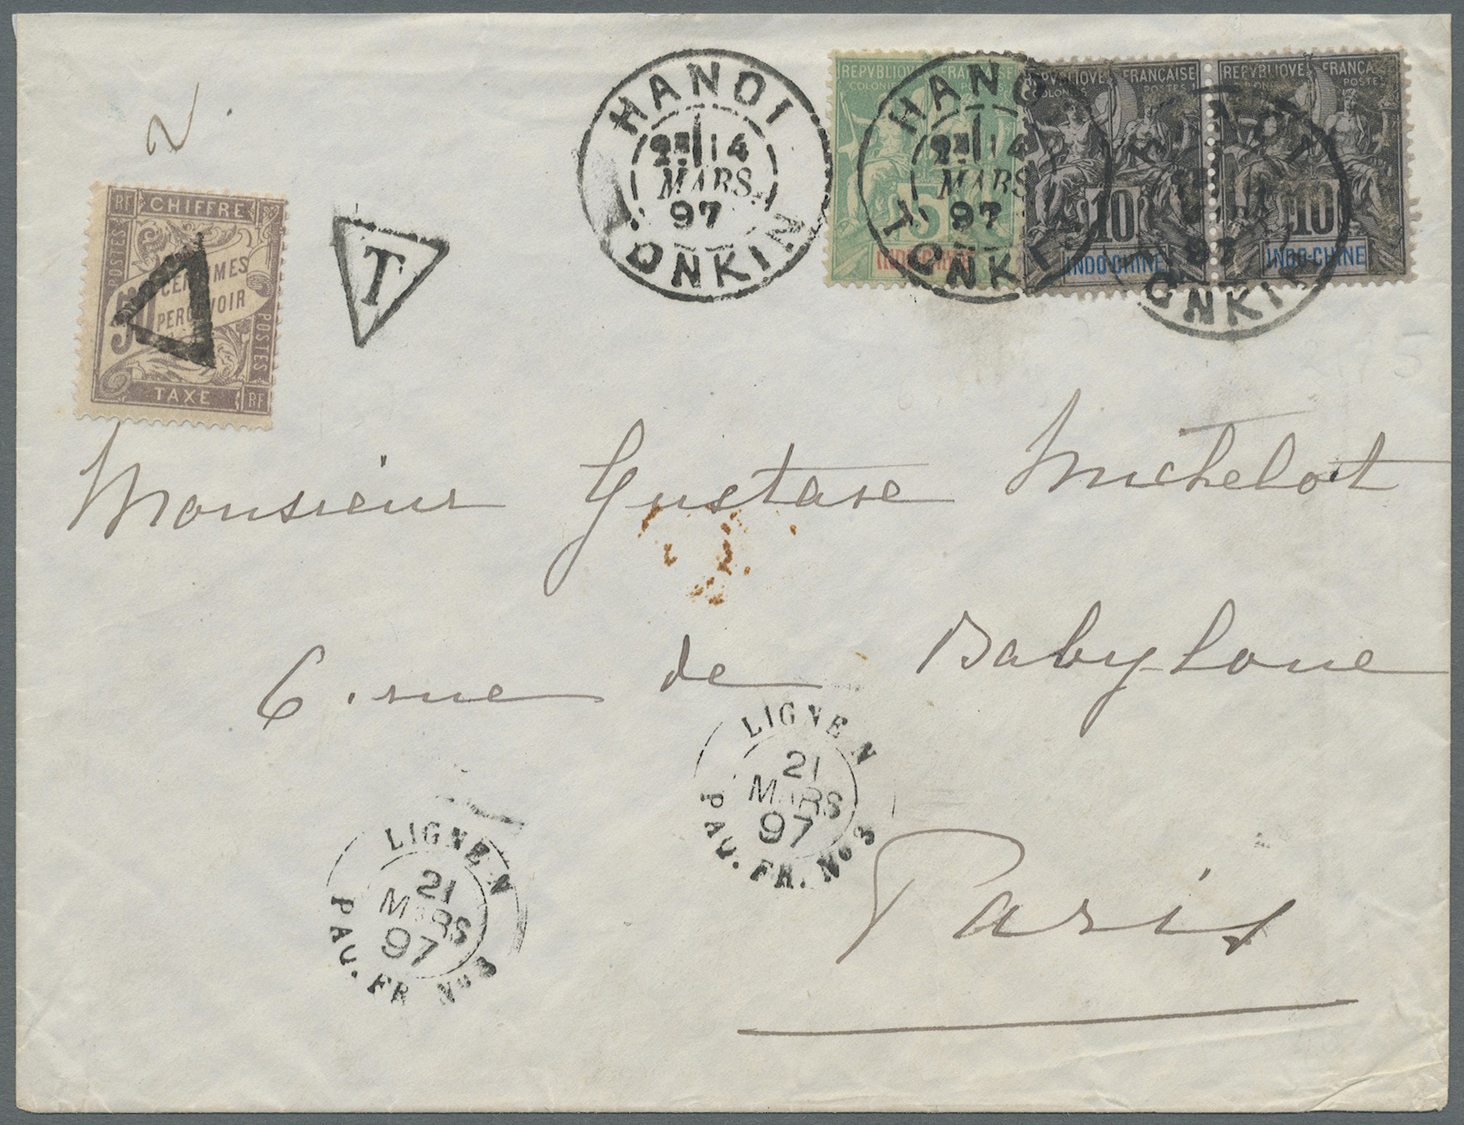 2
HANOI
2E 14
MARS
97
TONKIN
REPVBLIQVE FRANÇAISE
COLONIES POSTES
5
INDO-CHINE
HANOI
2E 14
MARS
97
TONKIN
REPVBLIQVE FRANÇAISE
COLONIES POSTES
10
INDO-CHINE
REPVBLIQVE FRANÇAISE
COLONIES POSTES
10
INDO-CHINE
HANOI
97
TONKIN
RF CHIFFRE
POSTES
CENTIMES
PERCEVOIR
POSTES
TAXE RF
T
Monsieur Gustave Michelot
6. rue de Babylone
Paris
LIGNE N
21
MARS
97
PAQ. FR. No 3
LIGNE N
21
MARS
97
PAQ. FR. No 3